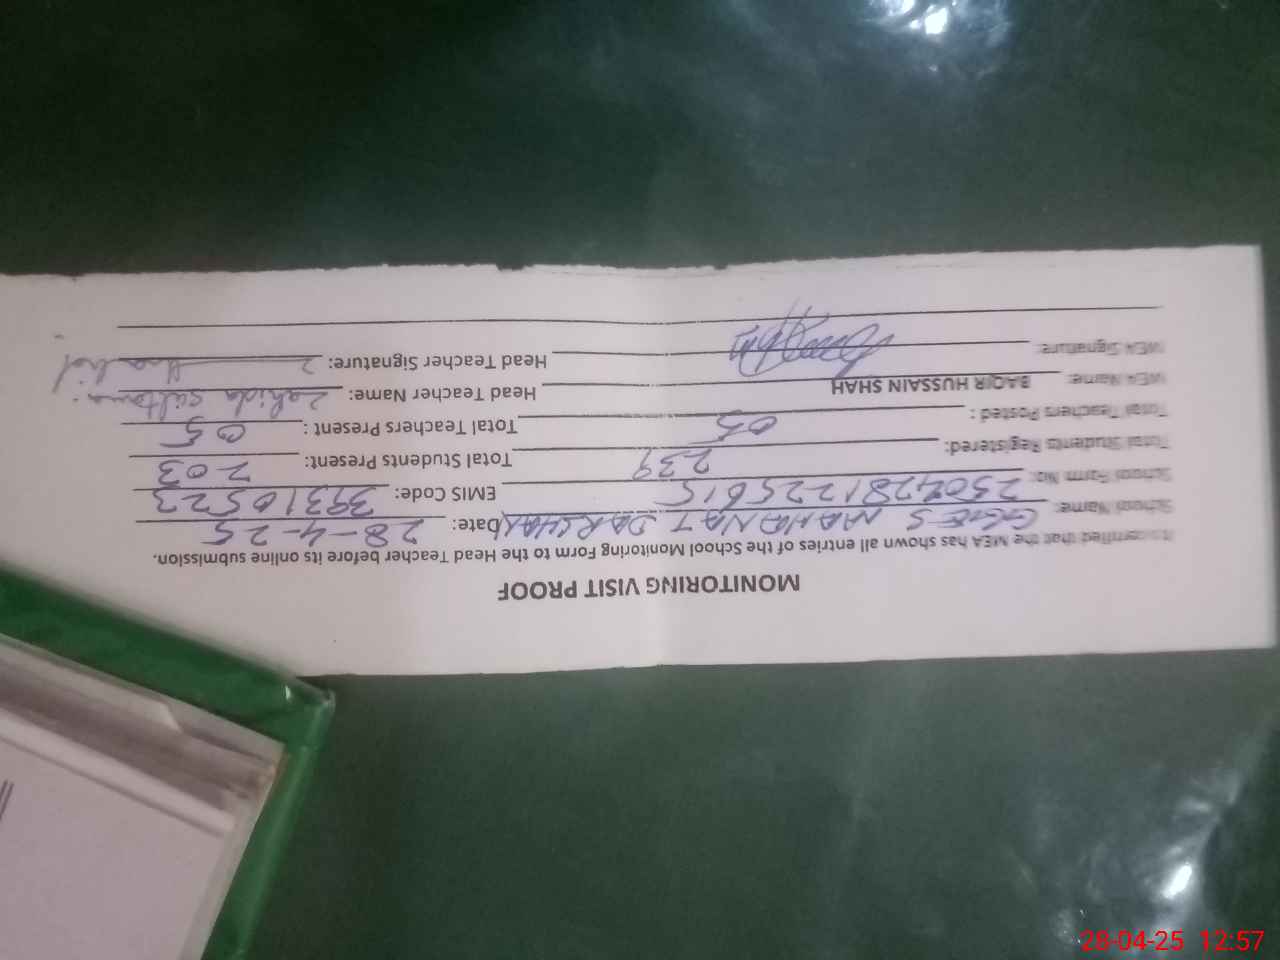 MONITORING VISIT PROOF
It is certified that the MEA has shown all entries of the School Monitoring Form to the Head Teacher before its online submission.
School Name: GGES MAHANAT DARGHAH Date: 28-4-25
School Form No: 2504281225615 EMIS Code: 39310523
Total Students Registered: 239 Total Students Present: 203
Total Teachers Posted: 05 Total Teachers Present: 05
MEA Name: BAQIR HUSSAIN SHAH Head Teacher Name: Zahida Sultana
MEA Signature: Head Teacher Signature:
28-04-25 12:57